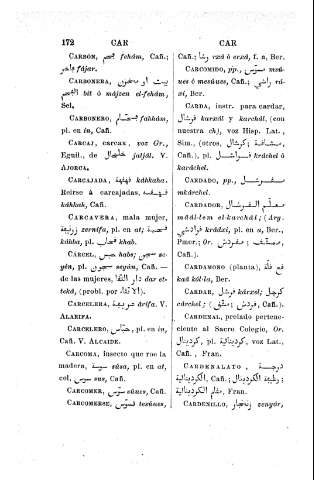 172 CAR CAR
CARBÓN, فحم feḥám, Cañ.;
فاجر fájar.
CARBONERA, بيت او مخزن
الفحم bit ó májzen el-feḥám,
Sel.
CARBONERO, فحّام faḥḥám,
pl. en in, Cañ.
CARCAJ, carcax, voz Gr.,
Eguil., de خلخال jaljál. V.
AJORCA.
CARCAJADA, قهقهة káhkaha.
Reirse á carcajadas, قهقه
káhkah, Cañ.
CARCAVERA, mala mujer,
زرنيفة zornífa, pl. en at; قحبة
káhba, pl. قحب khab.
CÁRCEL, حبس habs; سجن se-
yén, pl. سجون seyún, Cañ. —
de las mujeres, دار الثقة dar et-
teká, (probl. por الاتقاء).
CARCELERA, عريفة árifa. V.
ALARIFA.
CARCELERO, حبّاس, pl. en in,
Cañ. V. ALCAIDE.
CARCOMA, insecto que roe la
madera, سوسة súsa, pl. en at,
col. سوس sus, Cañ.
CARCOMER, سوّس súues, Cañ.
CARCOMERSE, تسوّس tesúues,
Cañ.; رشا rxá ó erxá, f. a, Ber.
CARCOMIDO, pp., مسوّس msú-
ues ó mesúues, Cañ.; راشي rá-
xi, Ber.
CARDA, instr. para cardar,
قرشال karxál y karchál, (con
nuestra ch), voz Hisp. Lat.,
Sim., (otros, كرشال; مشّافة,
Cañ.), pl. قراشل kráchel ó
karáchel.
CARDADO, pp., مقرشل
mkárchel.
CARDADOR, معلّم القرشال
máál-lem el-karchál; (Arg.
قرداش krádxi, pl. en a, Ber.,
Pmer.; Or. مقردش; مصنّف,
Cañ.).
CARDAMONO (planta), قعقلة
kaá kál-la, Ber.
CARDAR, قرشل kárxel; كرشل
cárchel; (قردش; مشّق, Cañ.).
CARDENAL, prelado pertene-
ciente al Sacro Colegio, Or.
كردينال, pl. كردينالية, voz Lat.,
Cañ., Fran.
CARDENALATO, درجة
كردينالية, Cañ.; وظيفة الكردينال;
مقام الكردينالية, Fran.
CARDENILLO, زنجار zenyár,